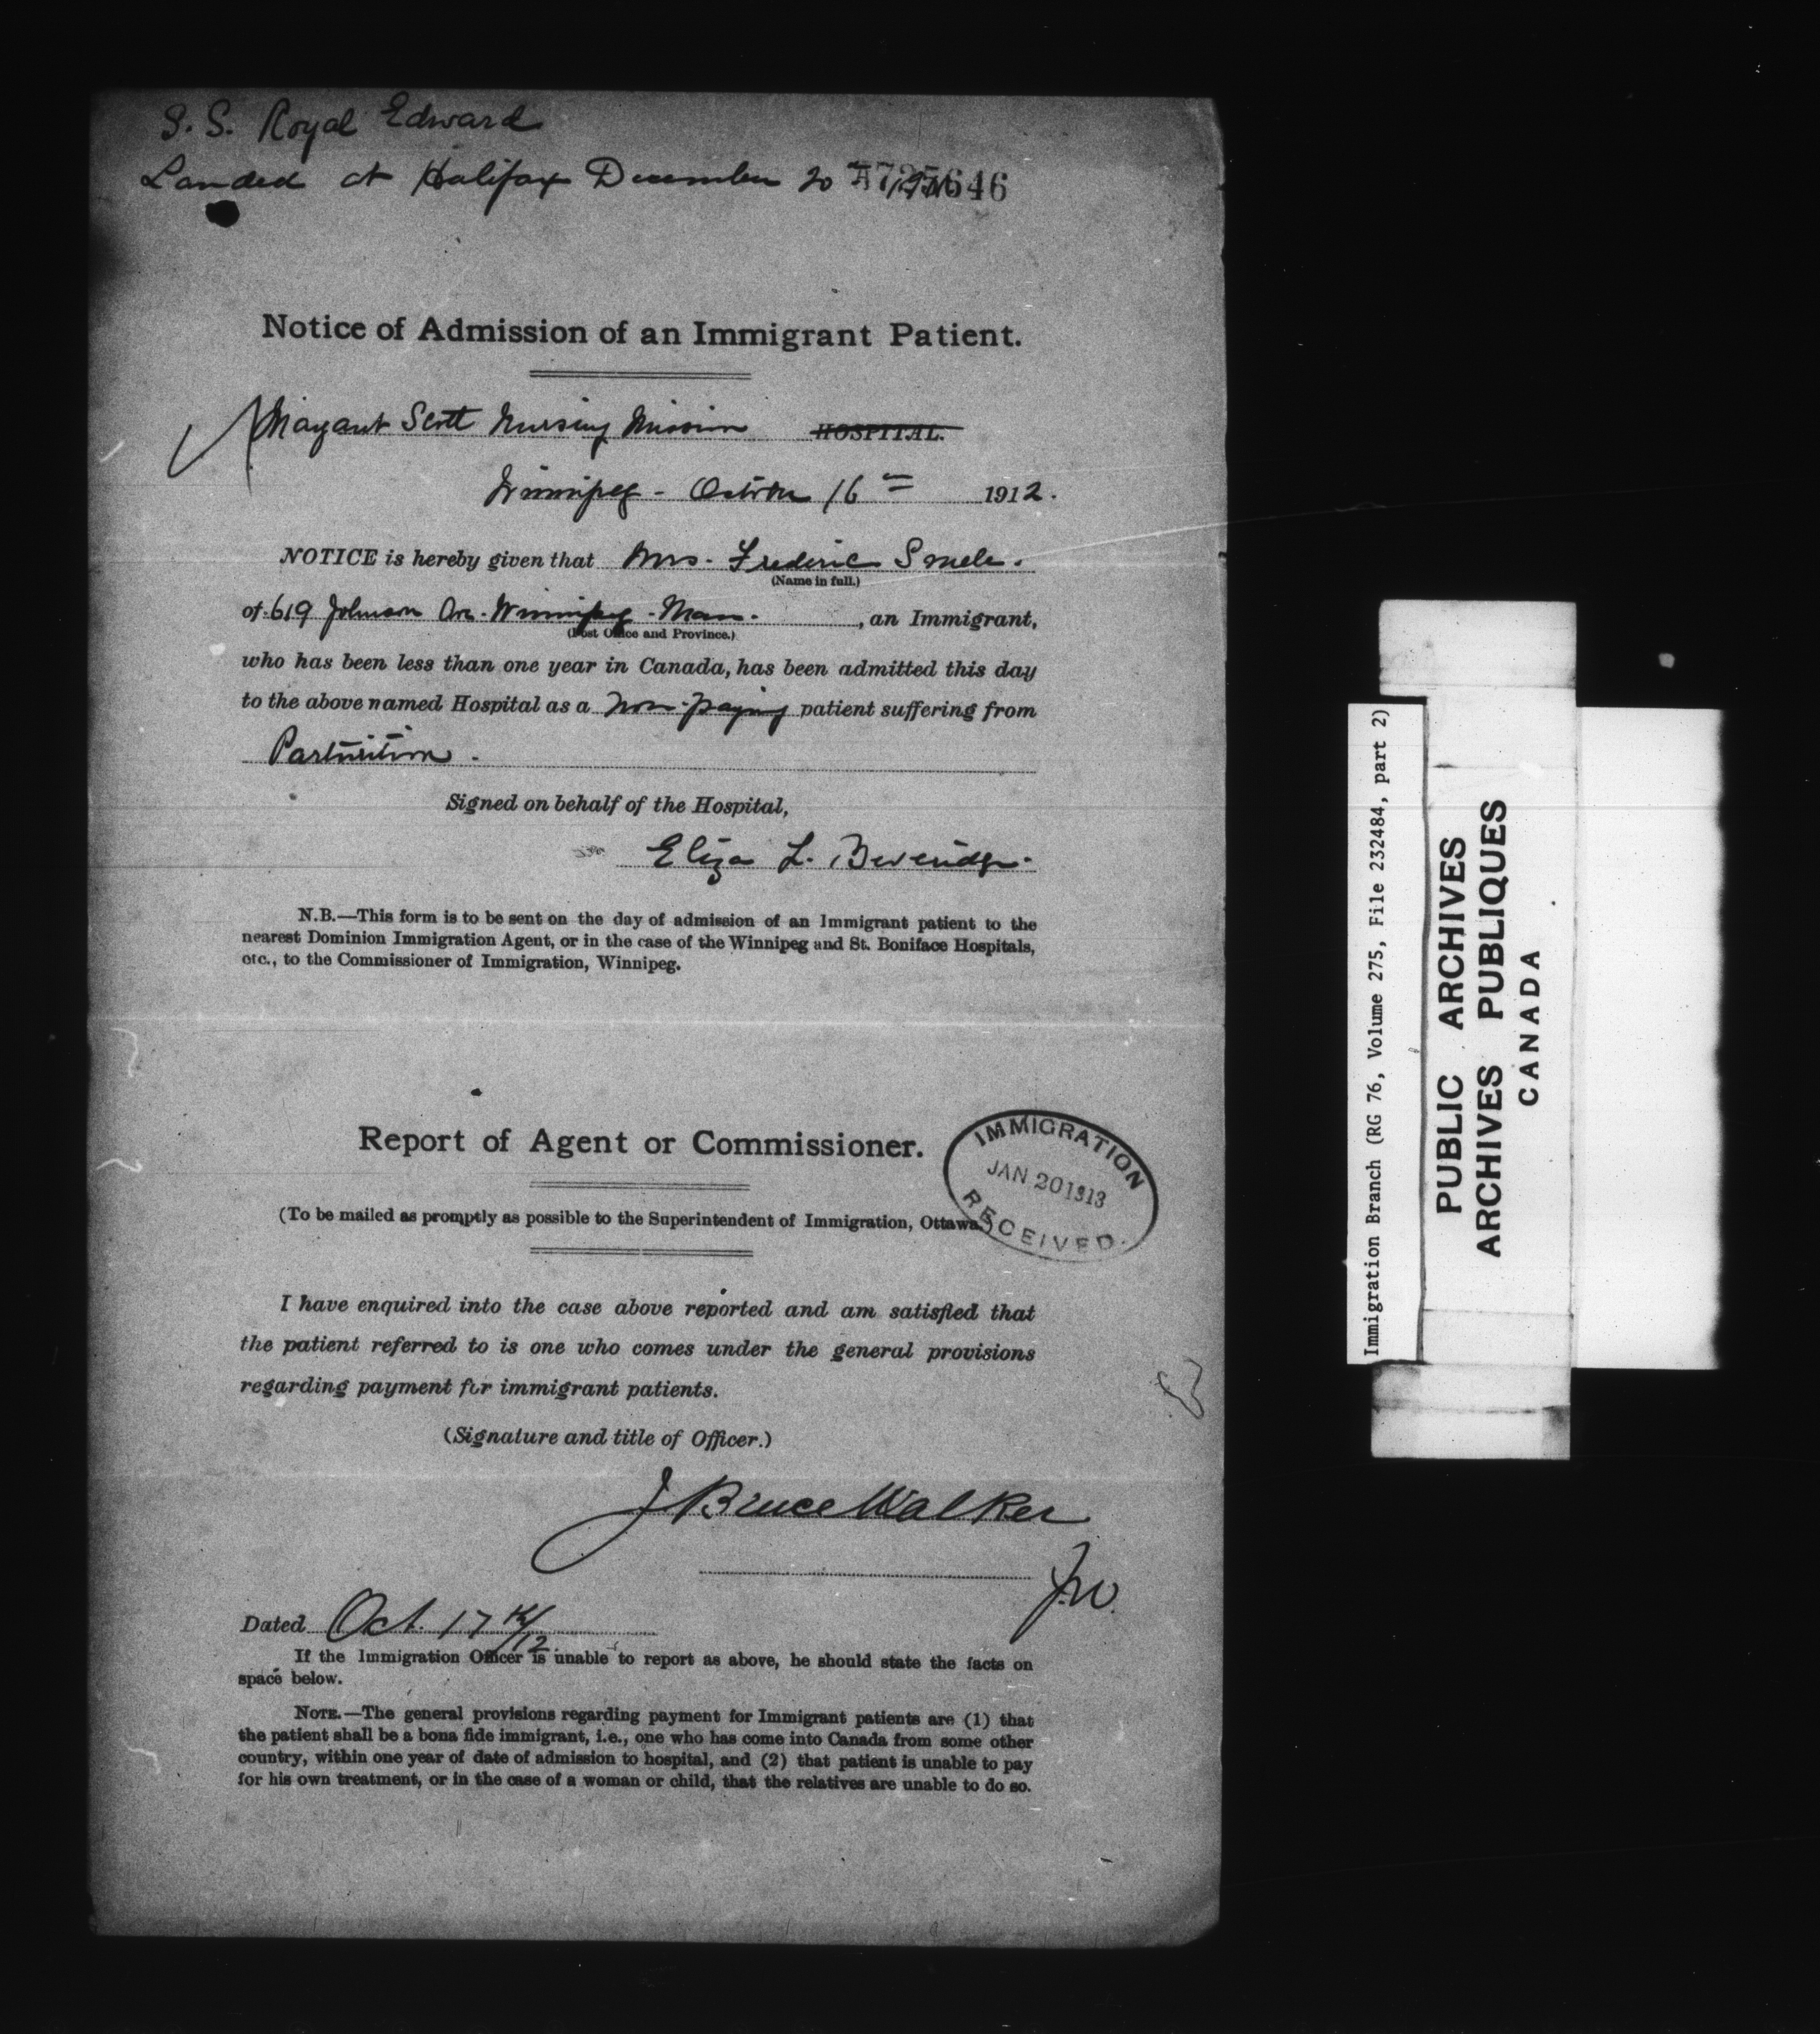 S. S. Royal Edward
Landed at Halifax December 20
Notice of Admission of an Immigrant Patient.
Margaret Scott Nursing Mission HOSPITAL.
Winnipeg - October 16th 1912.
NOTICE is hereby given that Mrs. Frederic
(Name in full.)
of 619 Johnson Ave. Winnipeg - Man. , an Immigrant,
(Post Office and Province.)
who has been less than one year in Canada, has been admitted this day
to the above named Hospital as a non-paying patient suffering from
Parturition.
Signed on behalf of the Hospital,
Eliza L. Beveridge.
N.B.—This form is to be sent on the day of admission of an Immigrant patient to the
nearest Dominion Immigration Agent, or in the case of the Winnipeg and St. Boniface Hospitals,
etc., to the Commissioner of Immigration, Winnipeg.
Report of Agent or Commissioner.
IMMIGRATION
JAN 20 1913
RECEIVED.
(To be mailed as promptly as possible to the Superintendent of Immigration, Ottawa.)
I have enquired into the case above reported and am satisfied that
the patient referred to is one who comes under the general provisions
regarding payment for immigrant patients.
(Signature and title of Officer.)
J Bruce Walker
Dated Oct. 17th/12.
If the Immigration Officer is unable to report as above, he should state the facts on
space below.
NOTE.—The general provisions regarding payment for Immigrant patients are (1) that
the patient shall be a bona fide immigrant, i.e., one who has come into Canada from some other
country, within one year of date of admission to hospital, and (2) that patient is unable to pay
for his own treatment, or in the case of a woman or child, that the relatives are unable to do so.
Immigration Branch (RG 76, Volume 275, File 232484, part 2)
PUBLIC ARCHIVES
ARCHIVES PUBLIQUES
CANADA